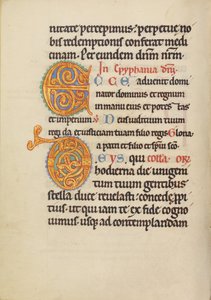 nitate percepimus: perpetuę no
bis redemptionis conferat medi
cinam. Per eundem dnm nrm.
In Epyphania dni
ECCE advenit
dominator dominus et regnum
in manu eius et potestas
et imperium. Ds iudicium tuum
regi da et iusticiam tuam filio regis Gloria
a patri et filio et spui
DEYS, qui
hodierna die unigeni
tum tuum gentibus
stella duce revelasti: concede ppi
tius. ut qui iam te ex fide cogno
uimus. usq; ad contemplandam